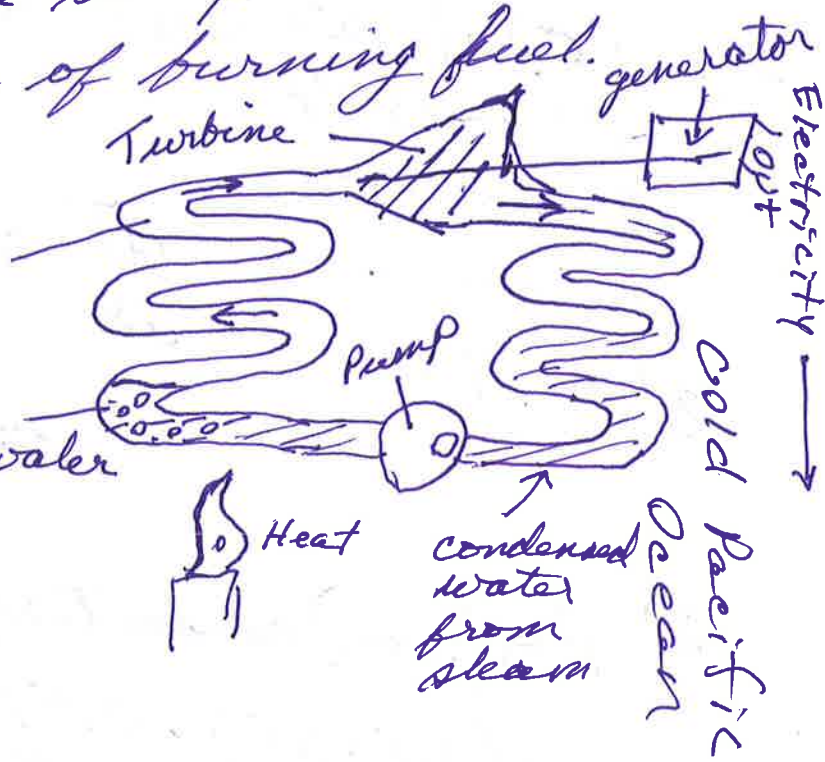 of burning fuel.
generator
Turbine
Electricity
out
Pump
water
Heat
condensed
water
from
steam
Cold Pacific
Ocean